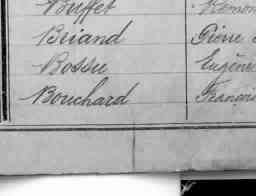 Buffet Remon
Briand Pierre
Bossu Eugène
Bouchard François